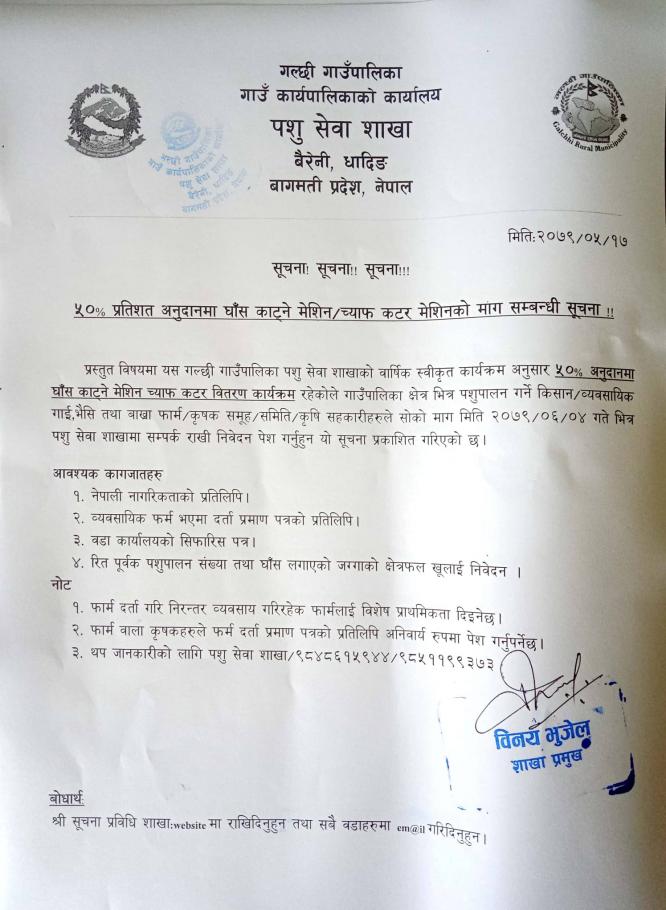 गल्छी गाउँपालिका
गाउँ कार्यपालिकाको कार्यालय
पशु सेवा शाखा
बैरेनी, धादिङ
बागमती प्रदेश, नेपाल
गल्छी गाउँपालिका
Galchhi Rural Municipality
गल्छी गाउँपालिका
गाउँ कार्यपालिकाको कार्यालय
पशु सेवा शाखा
बैरेनी, धादिङ
बागमती प्रदेश, नेपाल
मिति:२०७९/०५/१७
सूचना! सूचना!! सूचना!!!
५०% प्रतिशत अनुदानमा घाँस काट्ने मेशिन/च्याफ कटर मेशिनको माग सम्बन्धी सूचना !!
प्रस्तुत विषयमा यस गल्छी गाउँपालिका पशु सेवा शाखाको वार्षिक स्वीकृत कार्यक्रम अनुसार ५०% अनुदानमा
घाँस काट्ने मेशिन च्याफ कटर वितरण कार्यक्रम रहेकोले गाउँपालिका क्षेत्र भित्र पशुपालन गर्ने किसान/व्यवसायिक
गाई,भैसि तथा बाखा फार्म/कृषक समूह/समिति/कृषि सहकारीहरुले सोको माग मिति २०७९/०६/०४ गते भित्र
पशु सेवा शाखामा सम्पर्क राखी निवेदन पेश गर्नुहुन यो सूचना प्रकाशित गरिएको छ।
आवश्यक कागजातहरु
१. नेपाली नागरिकताको प्रतिलिपि।
२. व्यवसायिक फर्म भएमा दर्ता प्रमाण पत्रको प्रतिलिपि।
३. वडा कार्यालयको सिफारिस पत्र।
४. रित पूर्वक पशुपालन संख्या तथा घाँस लगाएको जग्गाको क्षेत्रफल खूलाई निवेदन ।
नोट
१. फार्म दर्ता गरि निरन्तर व्यवसाय गरिरहेक फार्मलाई विशेष प्राथमिकता दिइनेछ।
२. फार्म वाला कृषकहरुले फर्म दर्ता प्रमाण पत्रको प्रतिलिपि अनिवार्य रुपमा पेश गर्नुपर्नेछ।
३. थप जानकारीको लागि पशु सेवा शाखा/९८४८६१५९४४/९८५११९९३७३
विनय भुजेल
शाखा प्रमुख
बोधार्थ:
श्री सूचना प्रविधि शाखा:website मा राखिदिनुहुन तथा सबै वडाहरुमा em@il गरिदिनुहुन।